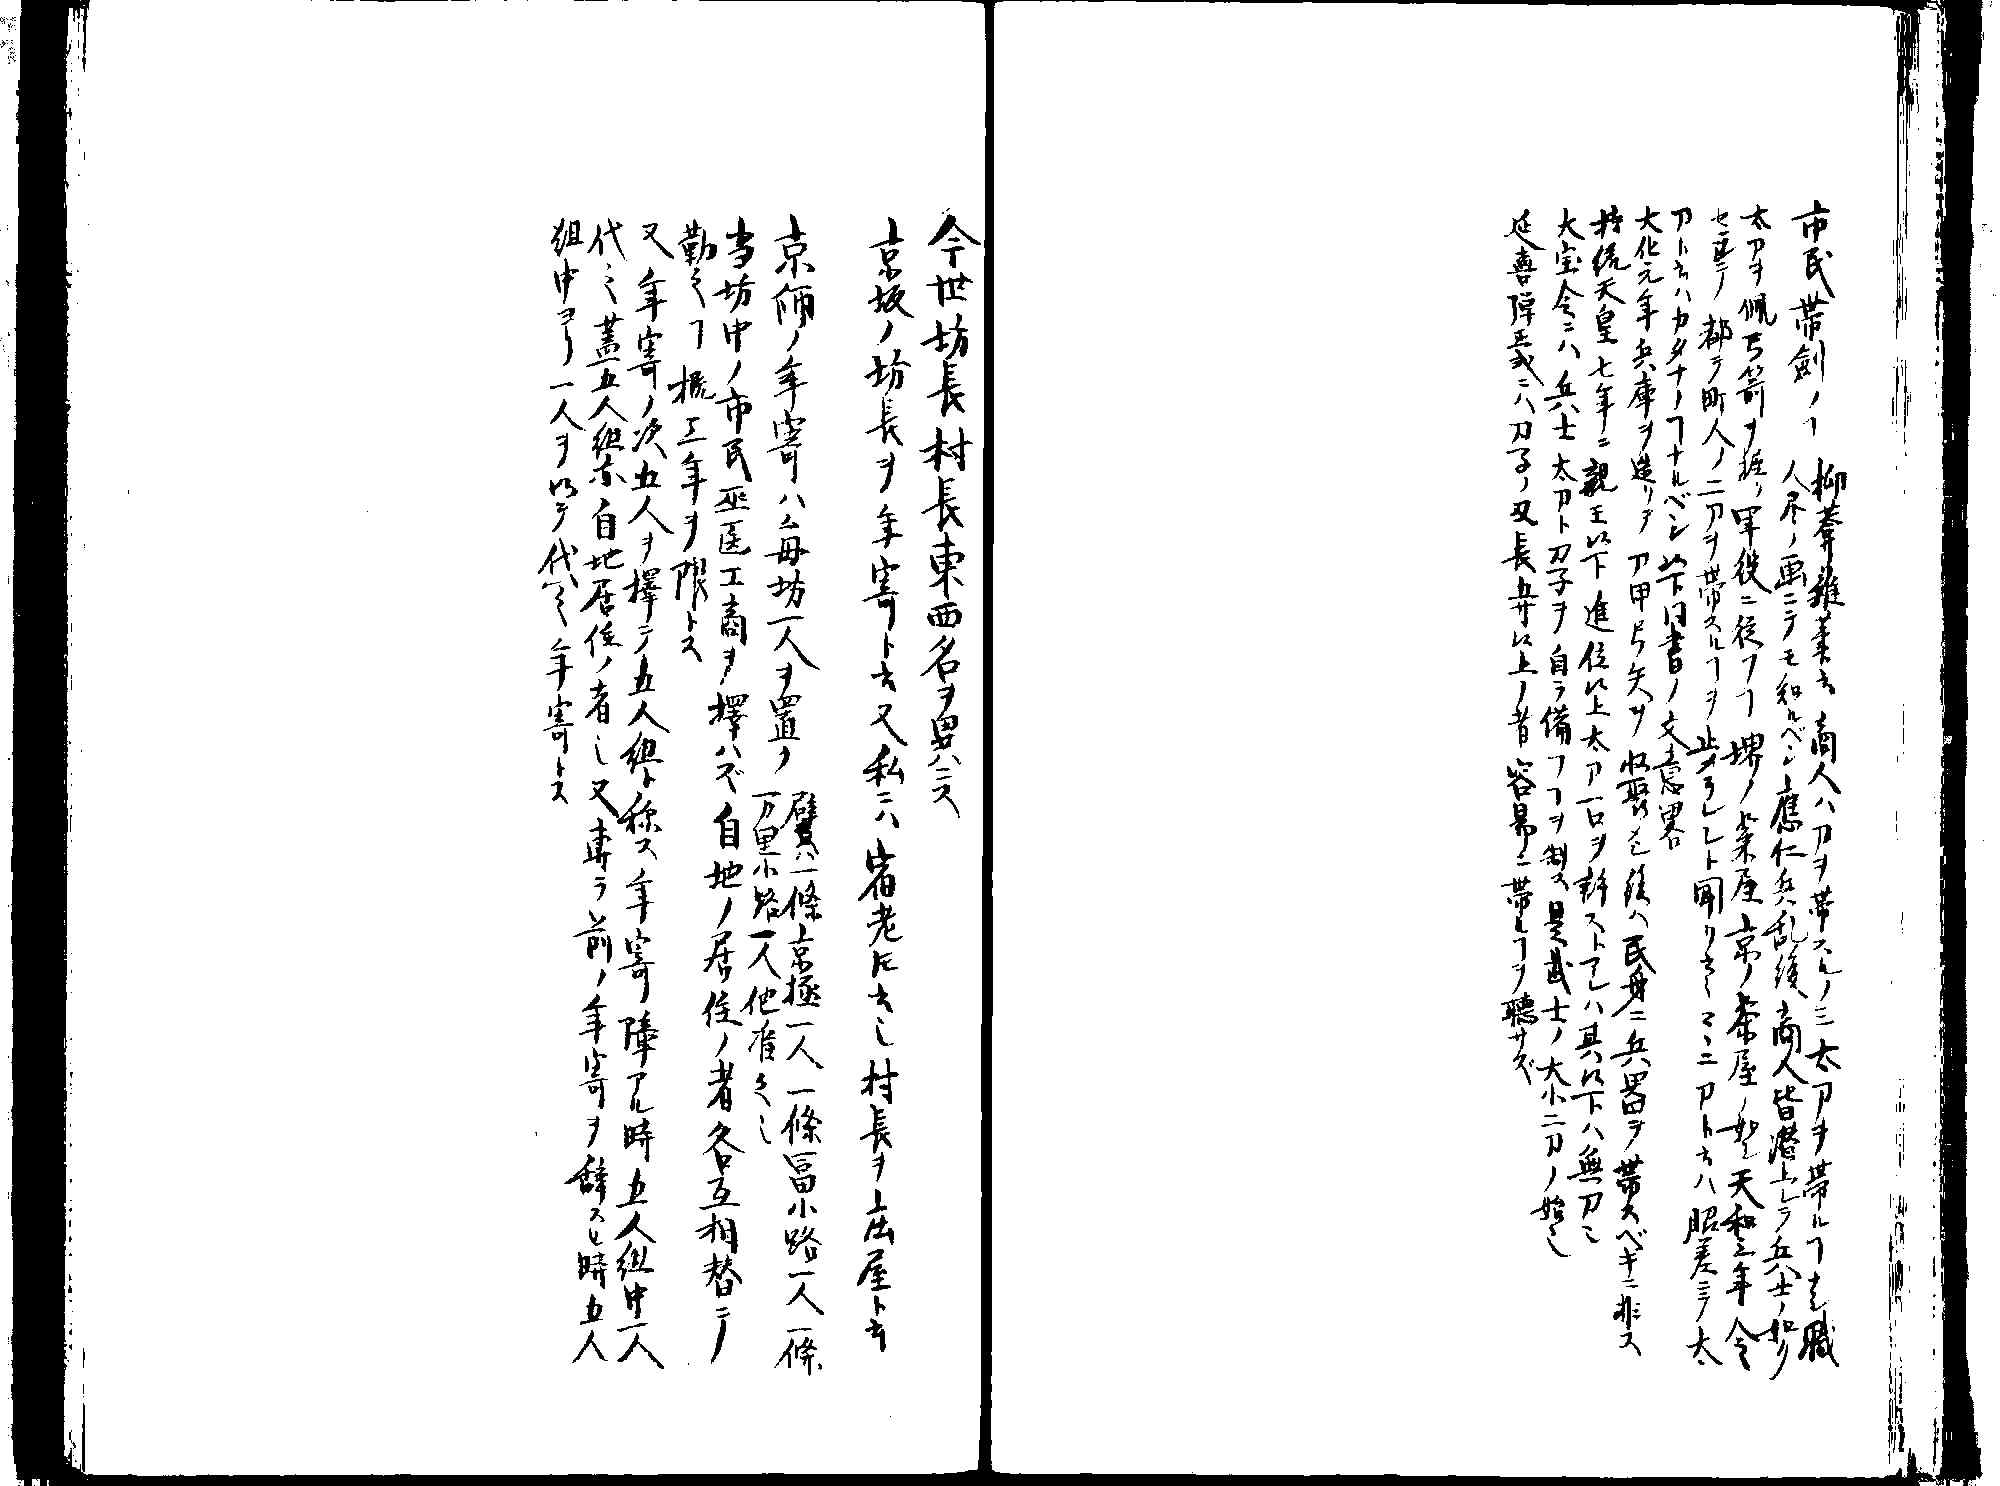 市民帯劔ノヿ　柳菴雑筆云商人ハ刀ヲ帯スルノミ太刀ヲ帯ルヿナシ職
人尽ノ画ニテモ知ルベシ應仁兵乱後商人皆潜上シラ兵士ノ如ク
太刀ヲ佩弓箭ヲ握リ軍役ニ従フヿ堺ノ柴屋京ノ茶屋ノ如シ天和三年令
セ玉テ都テ町人ノ二刀ヲ帯スルヿヲ止メラレシト聞リ云々コヽニ刀ト云ハ脇差ニテ太
刀ト云ハカタナノヿナルベシ以下同書ノ文意畧
大化元年兵庫ヲ造リテ刀甲弓矢ヲ収聚シ後ハ民身ニ兵器ヲ帯スベキニ非ス
持統天皇七年ニ親王以下進位以上太刀一口ヲ輸ストアレハ其以下ハ無刀也
大宝令ニハ兵士太刀ト刀子ヲ自ラ備フヿヲ制ス是武士ノ大小二刀ノ始也
延喜弾正式ニハ刀子ノ刃長五寸以上ノ者容易ニ帯ルヿヲ聴サズ
今世坊長村長東西名ヲ異ニス
京坂ノ坊長ヲ年寄ト云又私ニハ宿老トモ云也村長ヲ庄屋ト云
京師ノ年寄ハ毎坊一人ヲ置ク　譬ハ一條京極一人一條冨小路一人一條
万里小路一人他准之也
当坊中ノ市民巫医工商ヲ擇ハズ自地ノ居住ノ者各互相替ニ
勤之ヿ概三年ヲ限トス
又年寄ノ次五人ヲ擇テ五人組ト称ス年寄障アル時五人組中一人
代之蓋五人組亦自地居住ノ者也又専ラ前ノ年寄ヲ辞スル時五人
組中ヨリ一人ヲ以テ代之年寄トス